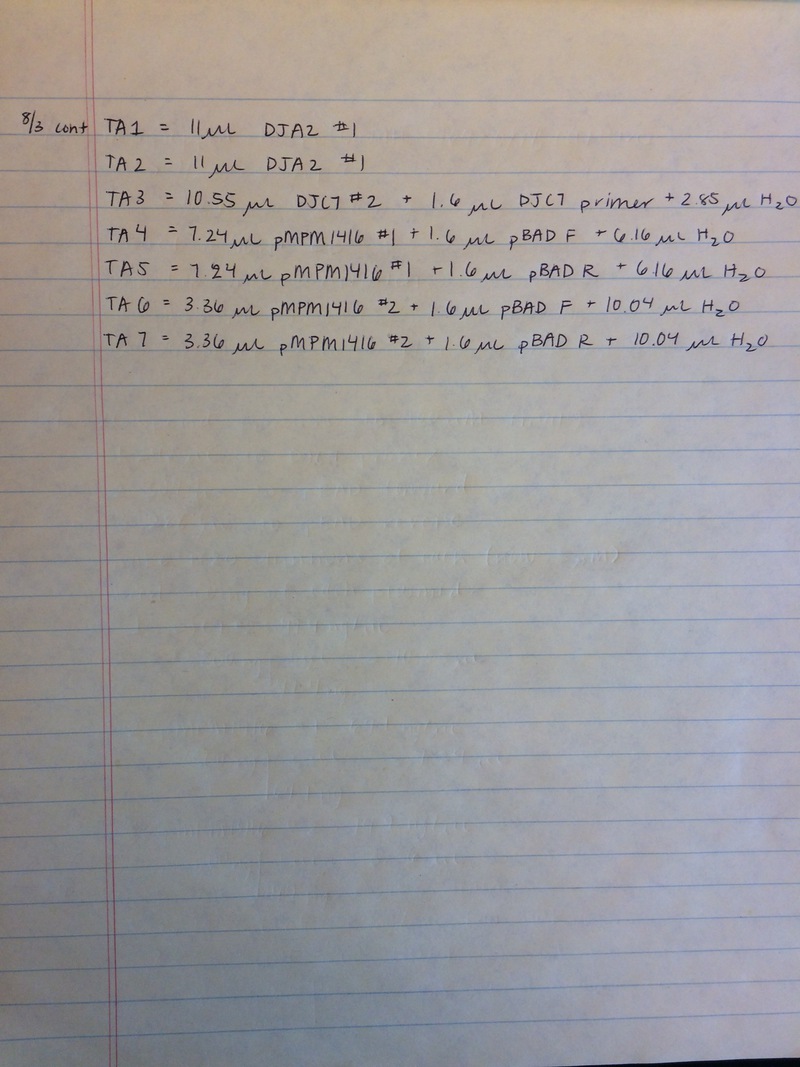 8/3 cont TA1 = 11 μL DJA2 #1
TA2 = 11 μL DJA2 #1
TA3 = 10.55 μL DJC7 #2 + 1.6 μL DJC7 primer + 2.85 μL H₂O
TA4 = 7.24 μL pMPM1416 #1 + 1.6 μL pBAD F + 6.16 μL H₂O
TA5 = 7.24 μL pMPM1416 #1 + 1.6 μL pBAD R + 6.16 μL H₂O
TA6 = 3.36 μL pMPM1416 #2 + 1.6 μL pBAD F + 10.04 μL H₂O
TA7 = 3.36 μL pMPM1416 #2 + 1.6 μL pBAD R + 10.04 μL H₂O